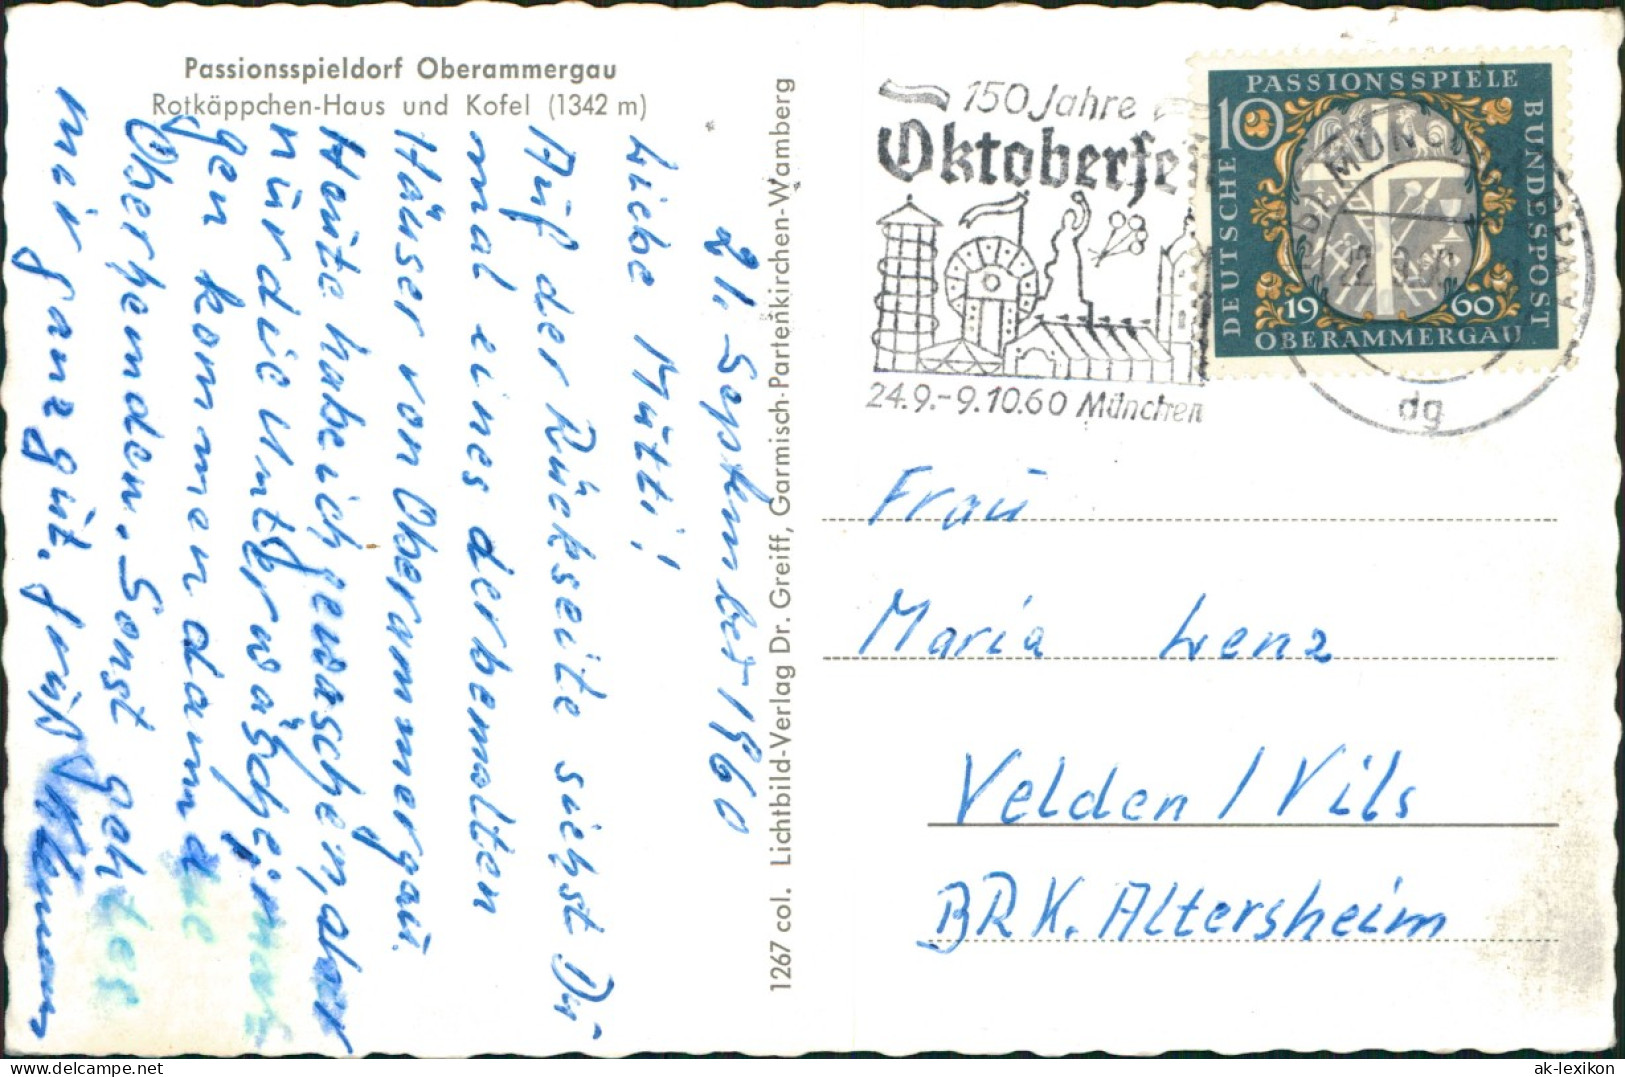 Passionsspieldorf Oberammergau
Rotkäppchen-Haus und Kofel (1342 m)
21. September 1960
Liebe Mutti!
Auf der Rückseite siehst Du
mal eines der bemalten
Häuser von Oberammergau.
Heute habe ich gewaschen, aber
nur die Unterwäsche, mor-
gen kommen dann die
Oberhemden. Sonst geht es
mir ganz gut. Gruß Klemens
1267 col. Lichtbild-Verlag Dr. Greiff, Garmisch-Partenkirchen-Wamberg
150 Jahre
Oktoberfest
24.9.-9.10.60 München
MÜNCHEN
dg
PASSIONSSPIELE
10
DEUTSCHE
BUNDESPOST
1960
OBERAMMERGAU
Frau
Maria Lenz
Velden / Vils
BRK. Altersheim
ak-ansichtskarten.de
ak-lexikon